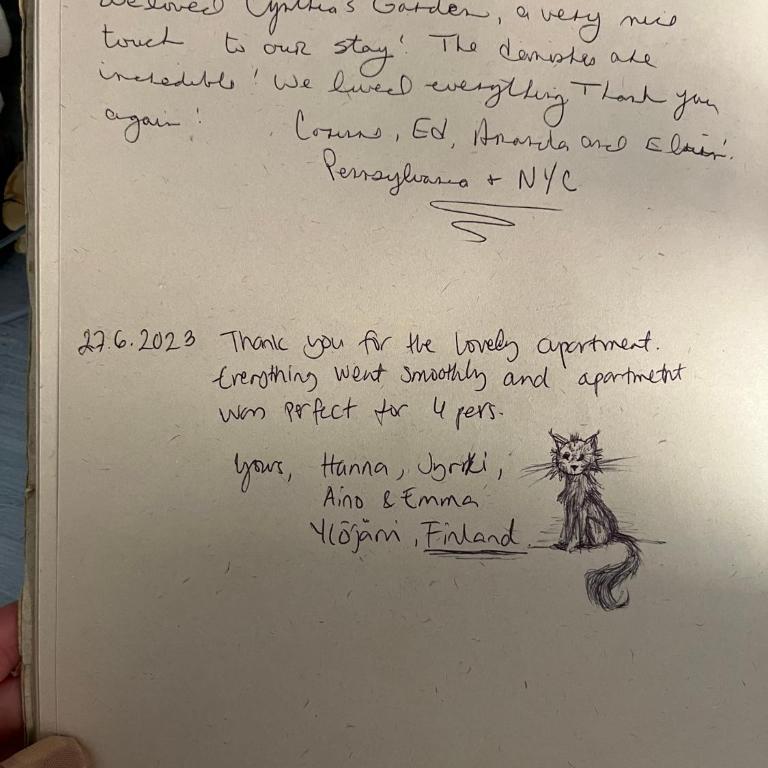 We loved Cynthia's Garden, a very nice
touch to our stay! The are
incredible! We loved everything Thank you
again!
, Ed, Amanda and
Pennsylvania + NYC
27.6.2023 Thank you for the lovely apartment.
Everything went smoothly and apartmetnt
was perfect for 4 pers.
Yours, Hanna, Jyrki,
Aino & Emma
Ylöjärvi, Finland